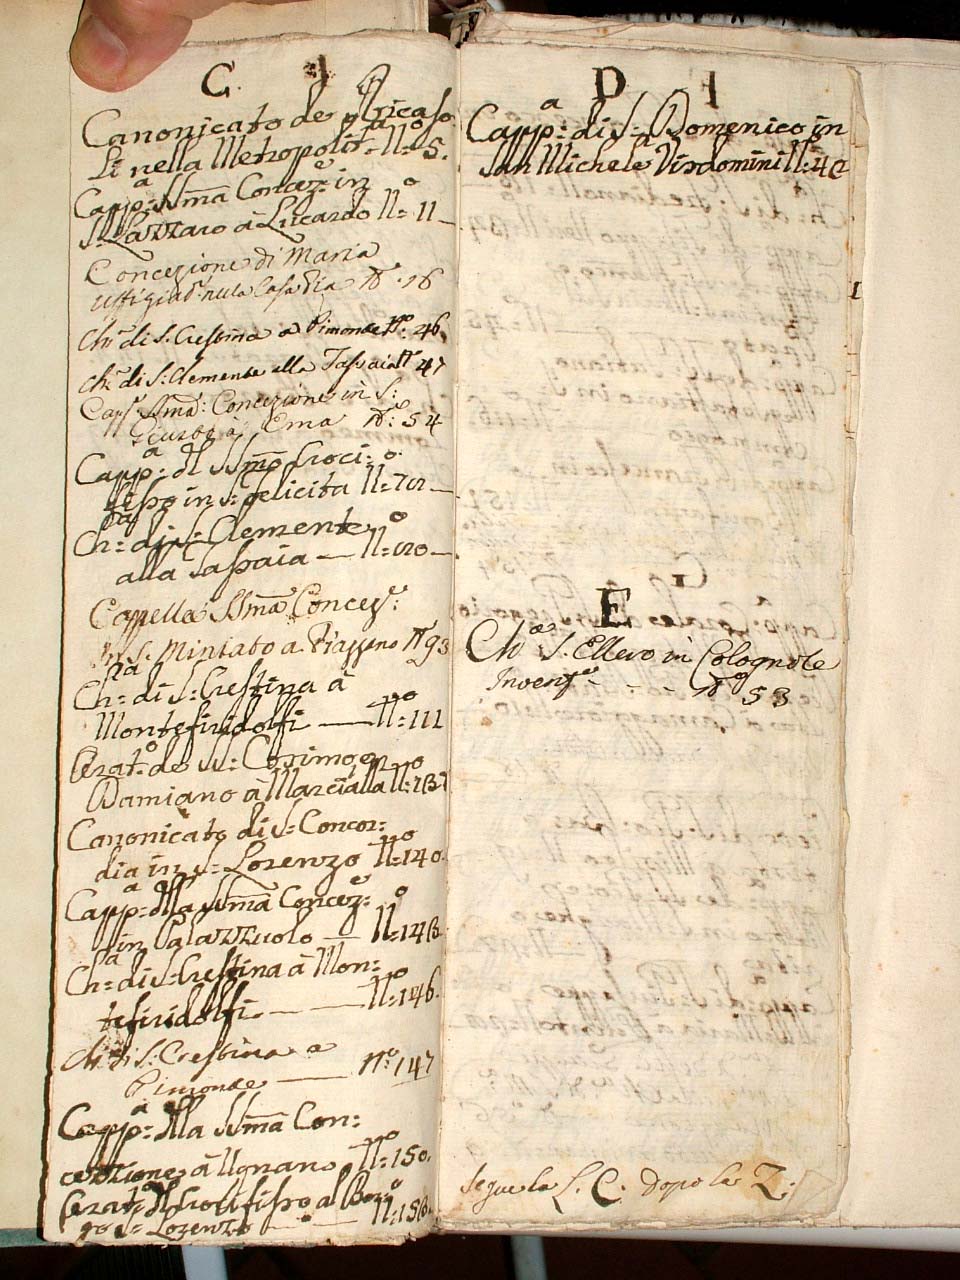 C.
Canonicato de Ricaso
li nella Metropolit.a N.o 5.
Capp.a SSma Concez.e in
S. Lazzaro à Lucardo N.o 11
Concezione di Maria
nella Casa Pia N.o 16
Ch.a di S. Crestina a Pimonte N.o 46
Ch.a di S. Clemente alla Sassaia N.o 47
Capp. SSma Concezione in S.
à Ema N.o 54
Capp.a del SSmo Croci-
fisso in S. Felicita N.o
Ch.a di S. Clemente
alla Sassaia — N.o
Cappella SSma Concez.e
in S. Miniato a Piazzano N.o 93
Ch.a di S. Crestina à
Montefiridolfi — N.o 111
Orat.o de SS. Cosimo e
Damiano à Marcialla N.o
Canonicato di S. Concor:
dia in S. Lorenzo N.o 140.
Capp.a della SSma Concez.e
in Palazzuolo — N.o 143
Ch.a di S. Crestina à Mon:
tefiridolfi — N.o 146.
Ch. di S. Crestina a
Pimonte — N.o 147
Capp.a della SSma Con:
cezzione à Ugnano N.o 150.
Orat.o del Crocifisso al Bor:
go S. Lorenzo — N.o
D
Capp.a di S. Domenico in
San Michele Visdomini N.
E
Ch.a S. Ellero in Colognole
Invent.o - - - N.o 53
Segue la L. C. dopo la Z.